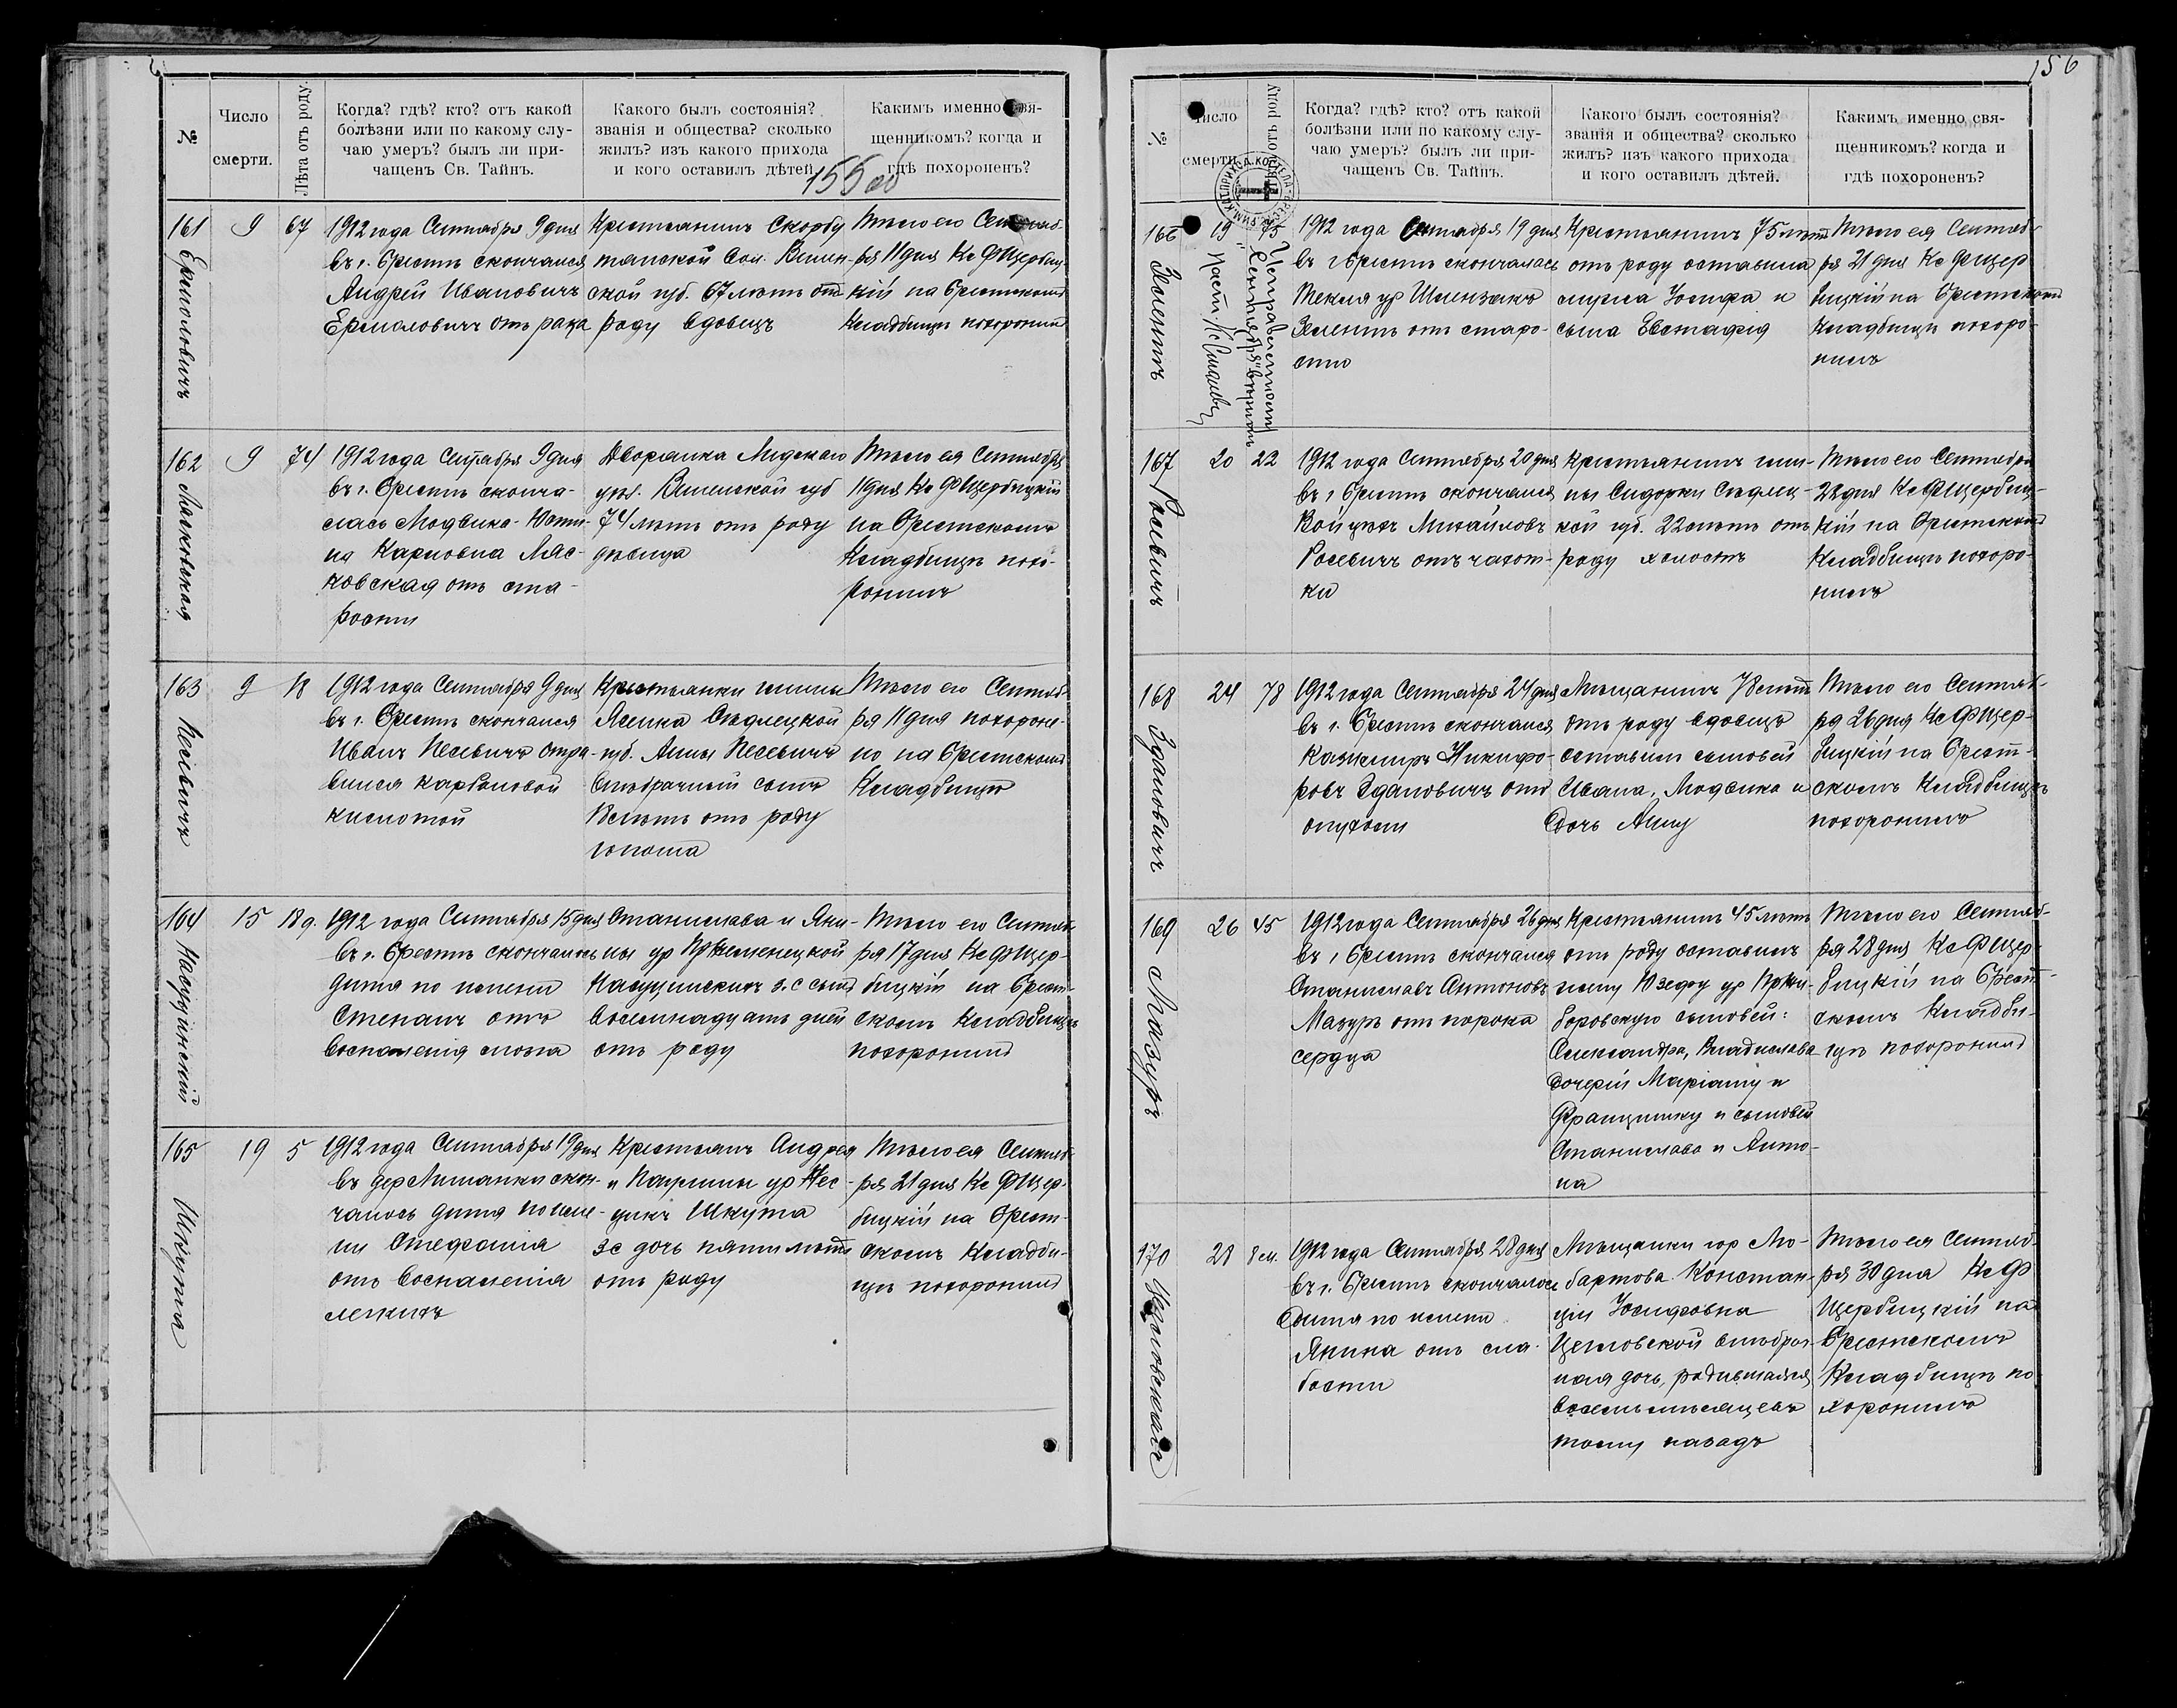 156
№
Число
смерти.
Лѣта отъ роду.
Когда? гдѣ? кто? отъ какой
болѣзни или по какому слу-
чаю умеръ? былъ ли при-
чащенъ Св. Тайнъ.
Какого былъ состоянія?
званія и общества? сколько
жилъ? изъ какого прихода
и кого оставилъ дѣтей.
Какимъ именно свя-
щенникомъ? когда и
гдѣ похороненъ?
155 об
161
Ермоловичъ
9
67
1912 года Сентября 9 дня
въ г. Брестѣ скончался
Андрей Ивановичъ
Ермоловичъ отъ рака
Крестьянинъ Скорбу
Вилен-
ской губ. 67 лѣтъ отъ
роду вдовецъ
Тѣло его Сентяб-
ря 11 дня Кс Ф Щербиц-
кій на Брестскомъ
Кладбищѣ похоронилъ
162
Лясковская
9
74
1912 года Сентября 9 дня
въ г. Брестѣ сконча-
лась Модвика-Юсти-
на Карловна Ляс-
ковская отъ ста-
рости
Дворянка Лидскаго
уѣз. Виленской губ
74 лѣтъ отъ роду
дѣвица
Тѣло ея Сентября
11 дня Кс Ф Щербицкій
на Брестскомъ
Кладбищѣ похо-
ронилъ
163
Несевичъ
9
18
1912 года Сентября 9 дня
въ г. Брестѣ скончался
Иванъ Несевичъ отра-
вился карболовой
кислотой
Крестьянки гмины
Яблонка Сѣдлецкой
губ. Анны Несевичъ
внѣбрачный сынъ
18 лѣтъ отъ роду
юноша
Тѣло его Сентяб-
ря 11 дня похороне-
но на Брестскомъ
Кладбищѣ
164
Кащинскій
15
18 д.
1912 года Сентября 15 дня
въ г. Брестѣ скончалось
дитя по имени
Степанъ отъ
воспаленія мозга
Станислава и Яни-
ны ур
з. с сынъ
восемнадцать дней
отъ роду
Тѣло его Сентяб-
ря 17 дня Кс Ф Щер-
бицкій на Брест-
скомъ Кладбищѣ
похоронилъ
165
Шкута
19
5
1912 года Сентября 19 дня
въ дер скон-
чалось дитя по име-
ни Стефанія
отъ воспаленія
легкихъ
Крестьянъ Андрея
и Паулины ур Нес-
Шкута
з с дочь пяти лѣтъ
отъ роду
Тѣло ея Сентяб-
ря 21 дня Кс Ф Щер-
бицкій на Брест-
скомъ Кладби-
щѣ похоронилъ
№
Число
смерти.
Лѣта отъ роду
Когда? гдѣ? кто? отъ какой
болѣзни или по какому слу-
чаю умеръ? былъ ли при-
чащенъ Св. Тайнъ.
Какого былъ состоянія?
званія и общества? сколько
жилъ? изъ какого прихода
и кого оставилъ дѣтей.
Какимъ именно свя-
щенникомъ? когда и
гдѣ похороненъ?
166
Зелентъ
19
75
Исправленному
„Сентября" вѣрить
Наст. Кс
1912 года Сентября 19 дня
въ г Брестѣ скончалась
Текля ур
Зелентъ отъ старо-
сти
Крестьянинъ 75 лѣтъ
отъ роду оставила
мужа Іосифа и
сына Евстафія
Тѣло ея Сентяб-
ря 21 дня Кс Ф Щер
бицкій на Брестскомъ
Кладбищѣ похоро-
нилъ
167
Росевичъ
20
22
1912 года Сентября 20 дня
въ г Брестѣ скончался
Войцехъ Михайловъ
Росевичъ отъ чахот-
ки
Крестьянинъ гми-
ны Сидорки Сѣдлец-
кой губ. 22 лѣтъ отъ
роду холостъ
Тѣло его Сентября
22 дня Кс Ф Щербиц-
кій на Брестскомъ
Кладбищѣ похоро-
нилъ
168
Здановичъ
24
78
1912 года Сентября 24 дня
въ г. Брестѣ скончался
Казимиръ Никифо-
ровъ Здановичъ отъ
опухоли
Мѣщанинъ 78 лѣтъ
отъ роду вдовецъ
оставилъ сыновей
Ивана, Модвика и
дочь Анну
Тѣло его Сентяб-
ря 26 дня Кс Ф Щер-
бицкій на Брест-
скомъ Кладбищѣ
похоронилъ
169
Мазуръ
26
45
1912 года Сентября 26 дня
въ г Брестѣ скончался
Станиславъ Антоновъ
Мазуръ отъ порока
сердца
Крестьянинъ 45 лѣтъ
отъ роду оставилъ
жену Юзефу ур
боровскую сыновей:
Александра, Владислава
дочерей Маріанну и
Францишку и сыновей
Станислава и Анто-
на
Тѣло его Сентяб-
ря 28 дня Кс Ф Щер-
бицкій на Брест-
скомъ Кладби-
щѣ похоронилъ
170
28
8 м.
1912 года Сентября 28 дня
въ г. Брестѣ скончалось
дитя по имени
Янина отъ сла-
бости
Мѣщанки гор Лю-
бартова Констан-
ціи Іосифовны
внѣбрач-
ная дочь, родившаяся
восемь мѣсяцевъ
тому назадъ
Тѣло ея Сентяб-
ря 30 дня Кс Ф
Щербицкій на
Брестскомъ
Кладбищѣ по
хоронилъ